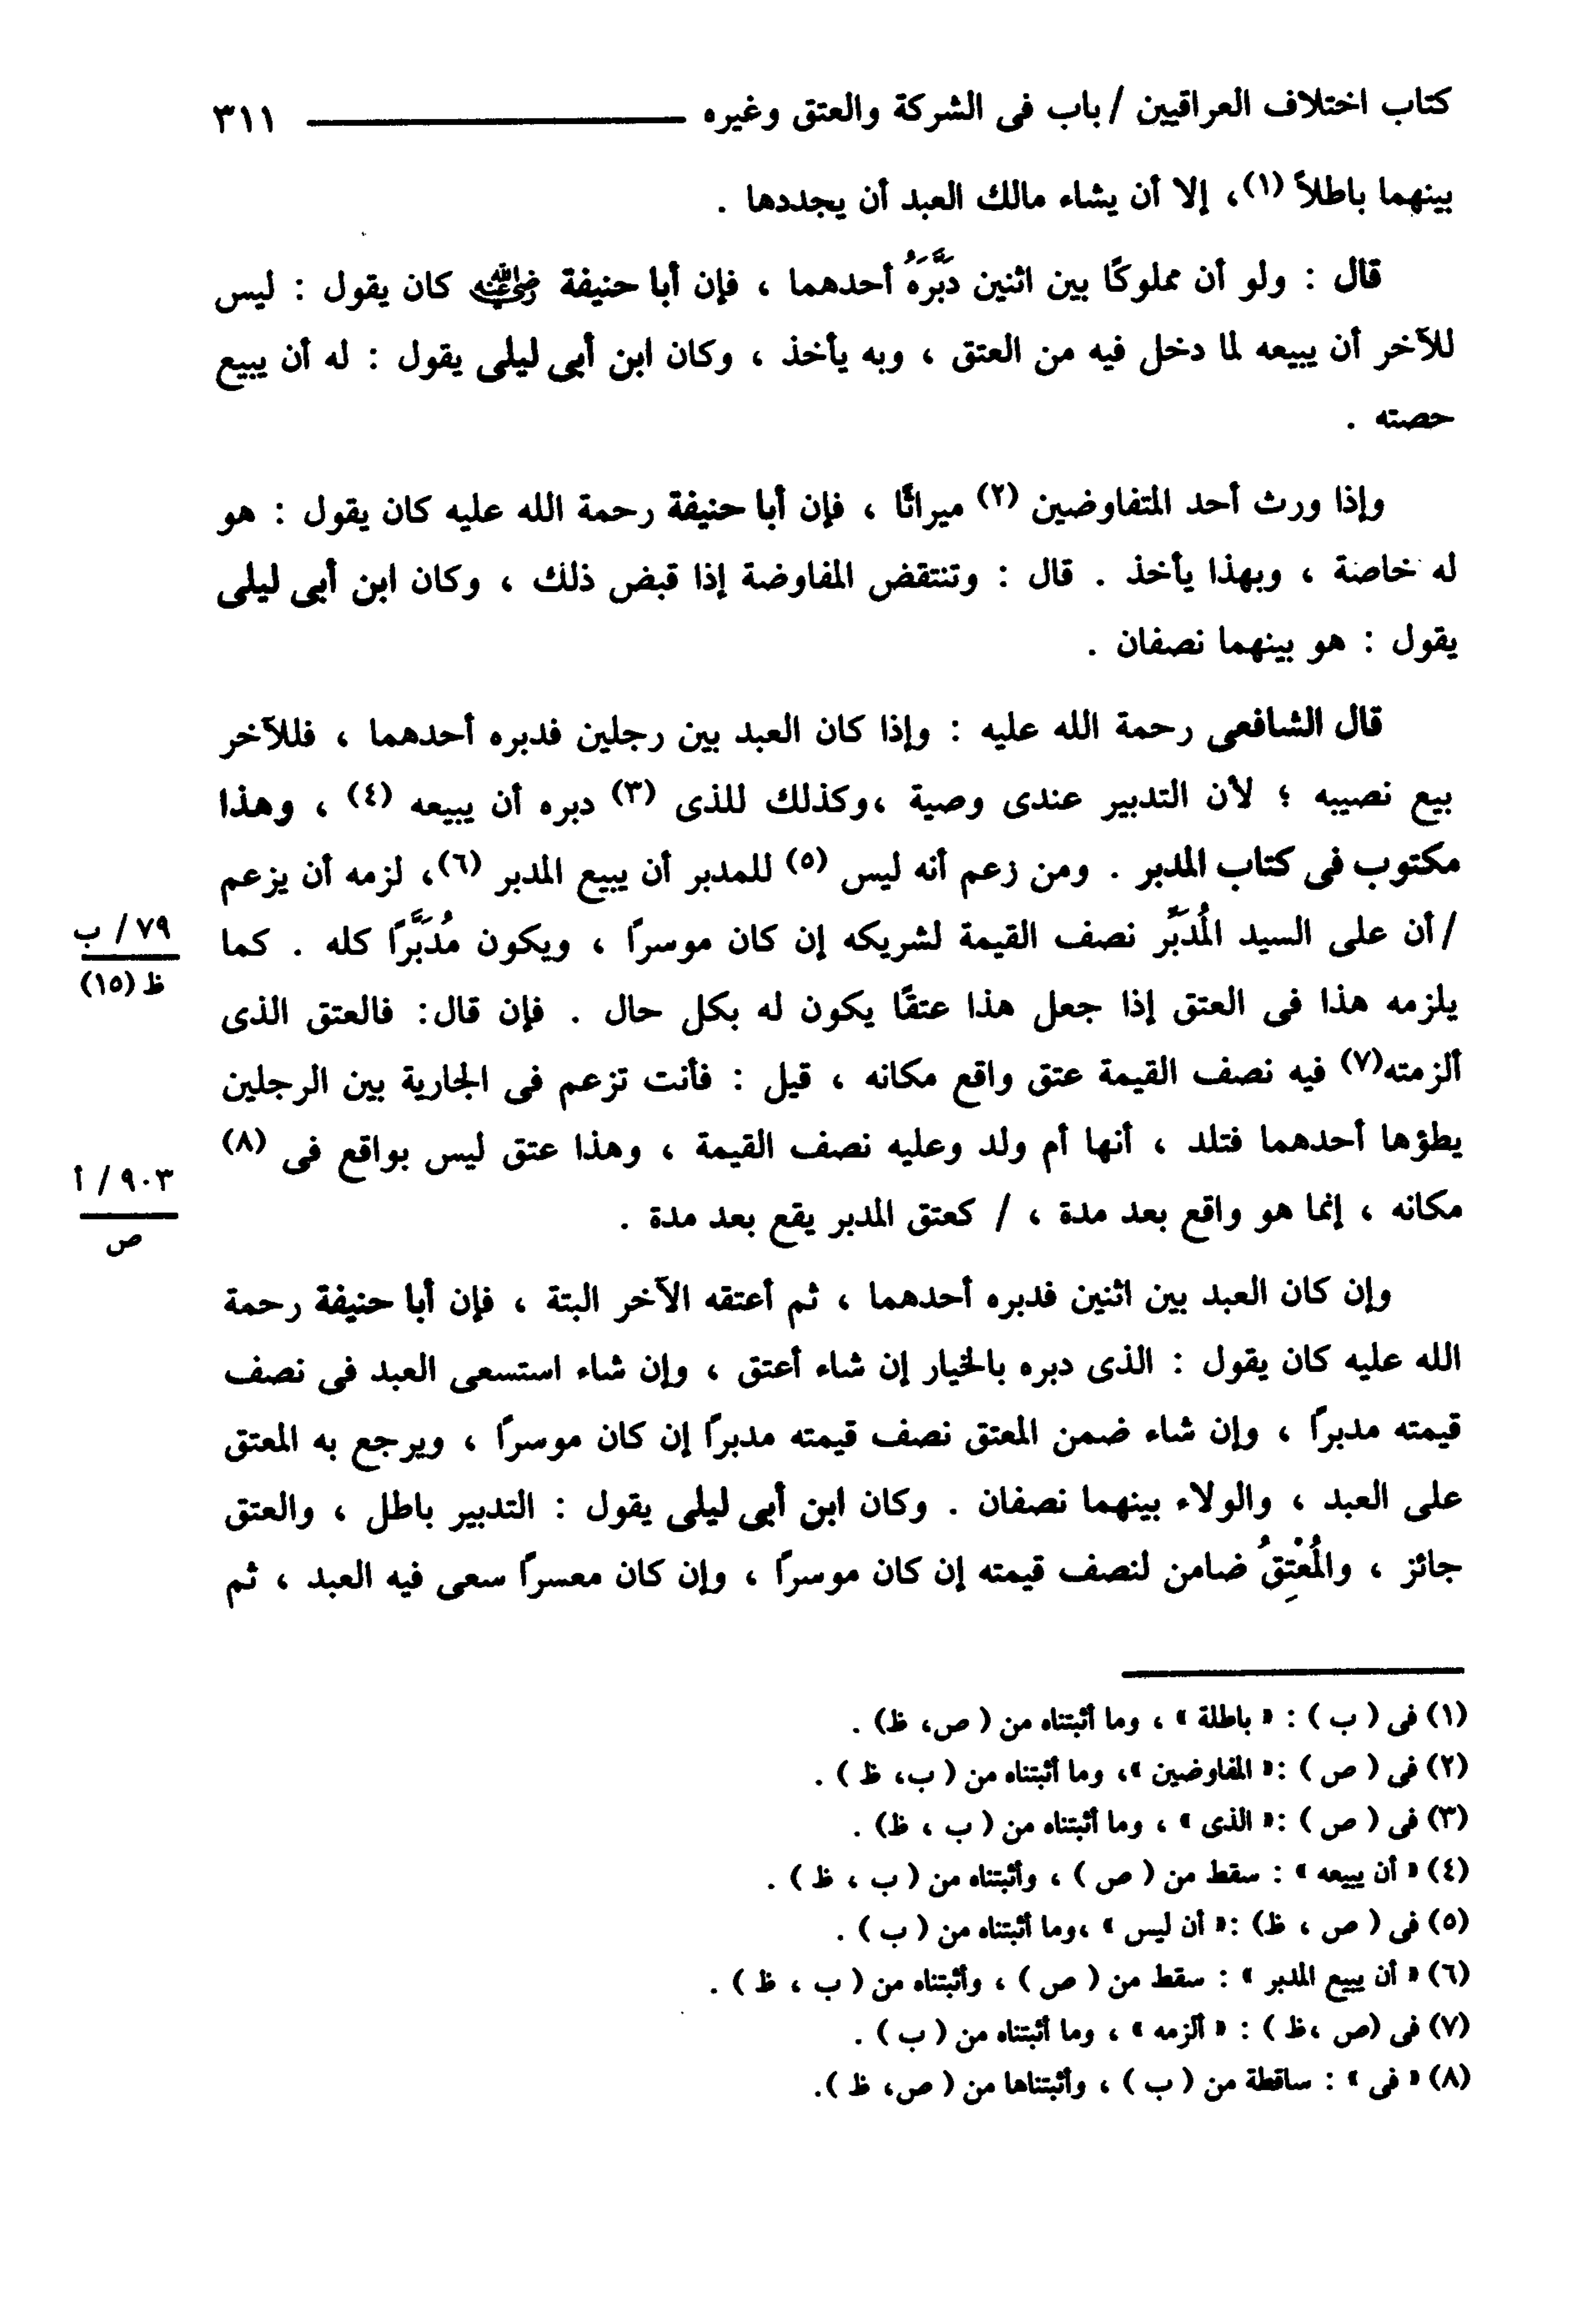 كتاب اختلاف العراقيين / باب فى الشركة والعتق وغيره ــــــــــــــ ٣١١
بينهما باطلاً (١)، إلا أن يشاء مالك العبد أن يجددها .
قال : ولو أن مملوكًا بين اثنين دَبَّرَهُ أحدهما ، فإن أبا حنيفة رضي الله عنه كان يقول : ليس
للآخر أن يبيعه لما دخل فيه من العتق ، وبه يأخذ ، وكان ابن أبى ليلى يقول : له أن يبيع
حصته .
وإذا ورث أحد المتفاوضين (٢) ميراثًا ، فإن أبا حنيفة رحمة الله عليه كان يقول : هو
له خاصة ، وبهذا يأخذ . قال : وتنتقض المفاوضة إذا قبض ذلك ، وكان ابن أبى ليلى
يقول : هو بينهما نصفان .
قال الشافعى رحمة الله عليه : وإذا كان العبد بين رجلين فدبره أحدهما ، فللآخر
بيع نصيبه ؛ لأن التدبير عندى وصية ،وكذلك للذى (٣) دبره أن يبيعه (٤) ، وهذا
مكتوب فى كتاب المدبر . ومن زعم أنه ليس (٥) للمدبر أن يبيع المدبر (٦)، لزمه أن يزعم
/ أن على السيد المُدَبِّر نصف القيمة لشريكه إن كان موسرًا ، ويكون مُدَبَّرًا كله . كما
٧٩ / ب
ظ (١٥)
يلزمه هذا فى العتق إذا جعل هذا عتقًا يكون له بكل حال . فإن قال: فالعتق الذى
ألزمته(٧) فيه نصف القيمة عتق واقع مكانه ، قيل : فأنت تزعم فى الجارية بين الرجلين
يطؤها أحدهما فتلد ، أنها أم ولد وعليه نصف القيمة ، وهذا عتق ليس بواقع فى (٨)
٩٠٣ / أ
ص
مكانه ، إنما هو واقع بعد مدة ، / كعتق المدبر يقع بعد مدة .
وإن كان العبد بين اثنين فدبره أحدهما ، ثم أعتقه الآخر البتة ، فإن أبا حنيفة رحمة
الله عليه كان يقول : الذى دبره بالخيار إن شاء أعتق ، وإن شاء استسعى العبد فى نصف
قيمته مدبرًا ، وإن شاء ضمن المعتق نصف قيمته مدبرًا إن كان موسرًا ، ويرجع به المعتق
على العبد ، والولاء بينهما نصفان . وكان ابن أبى ليلى يقول : التدبير باطل ، والعتق
جائز ، والمُعْتِقُ ضامن لنصف قيمته إن كان موسرًا ، وإن كان معسرًا سعى فيه العبد ، ثم
(١) فى ( ب ) : « باطلة » ، وما أثبتناه من ( ص، ظ) .
(٢) فى ( ص ) :« المفاوضين »، وما أثبتناه من ( ب، ظ ) .
(٣) فى ( ص ) :« الذى » ، وما أثبتناه من ( ب ، ظ) .
(٤) « أن يبيعه » : سقط من ( ص ) ، وأثبتناه من ( ب ، ظ ) .
(٥) فى ( ص ، ظ) :« أن ليس » ،وما أثبتناه من ( ب ) .
(٦) « أن يبيع المدبر » : سقط من ( ص ) ، وأثبتناه من ( ب ، ظ ) .
(٧) فى (ص ،ظ ) : « ألزمه » ، وما أثبتناه من ( ب ) .
(٨) « فى » : ساقطة من ( ب ) ، وأثبتناها من ( ص، ظ ).